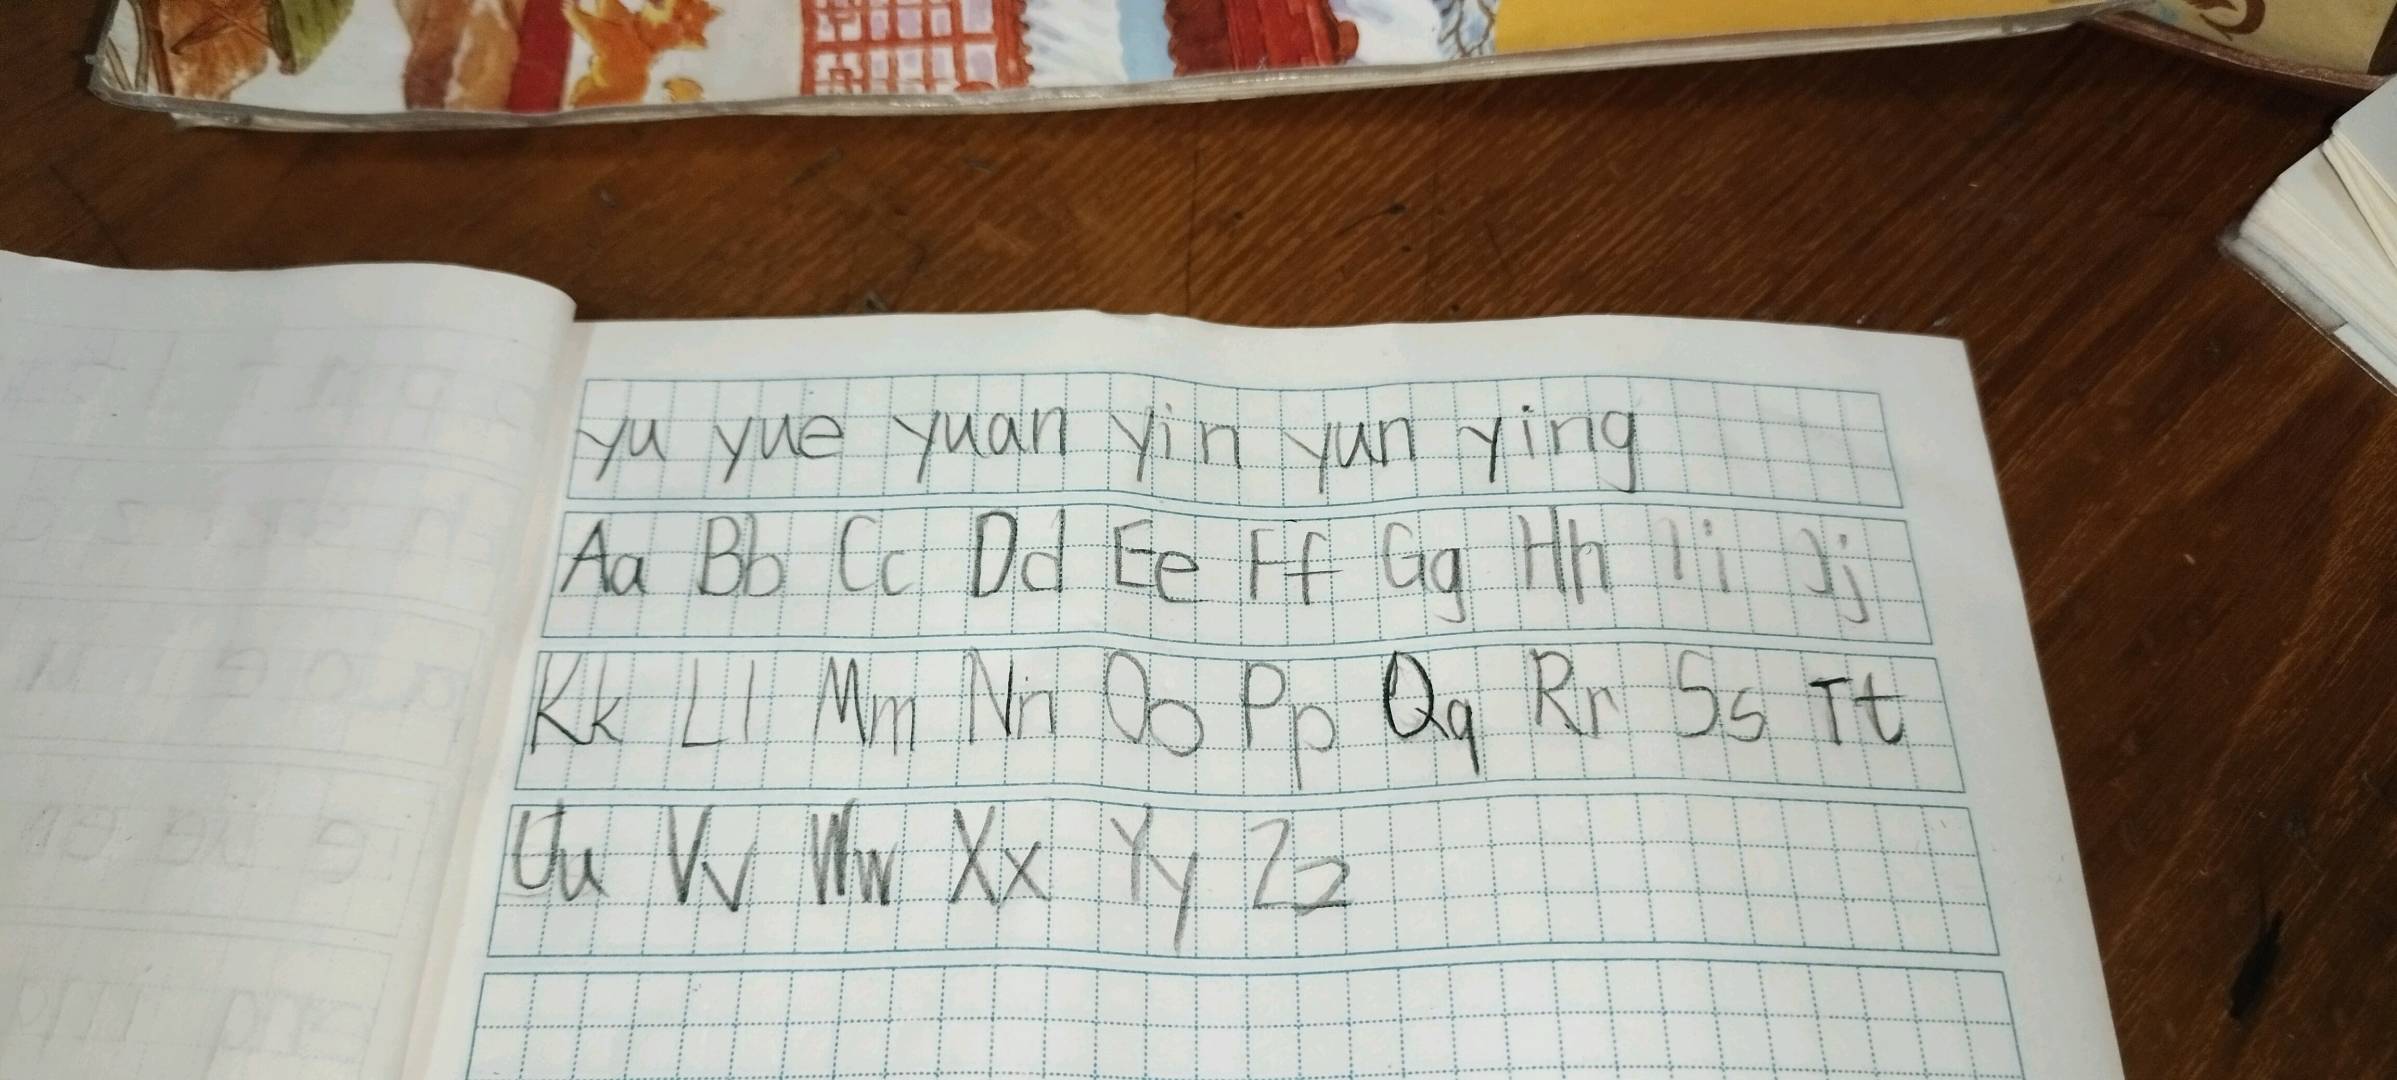 yu yue yuan yin yun ying
Aa Bb Cc Dd Ee Ff Gg Hh Ii Jj
Kk Ll Mm Nn Oo Pp Qq Rr Ss Tt
Uu Vv Ww Xx Yy Zz